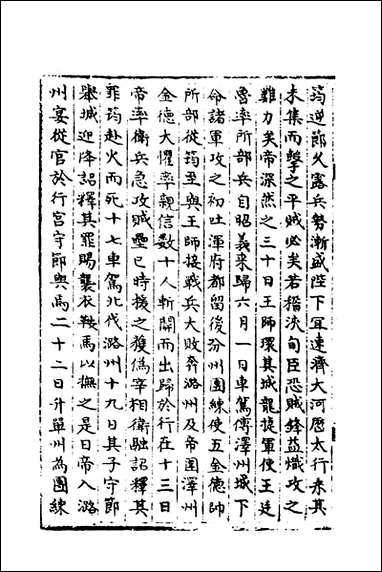 筠逆節久露兵勢漸盛陛下宜速濟大河歷太行乘其
未集而擊之平賊必矣若稽浹旬臣恐賊鋒益熾攻之
難力矣帝深然之三十日王師環其城龍捷軍使王廷
魯率所部兵自昭義来歸六月一日車駕傅澤州城下
命諸軍攻之初吐渾府都留後汾州團練使王金德帥
所部從筠至與王師接戰兵大敗奔潞州及帝圍澤州
金德大懼率親信數十人斬關而出歸於行在十三日
帝率衛兵急攻賊壘巳時拔之獲偽宰相衛融詔釋其
罪筠赴火而死十七車駕北伐潞州十九日其子守節
舉城迎降詔釋其罪賜襲衣鞍馬以撫之是日帝入潞
州宴從官於行宫守節與焉二十二日升單州為團練